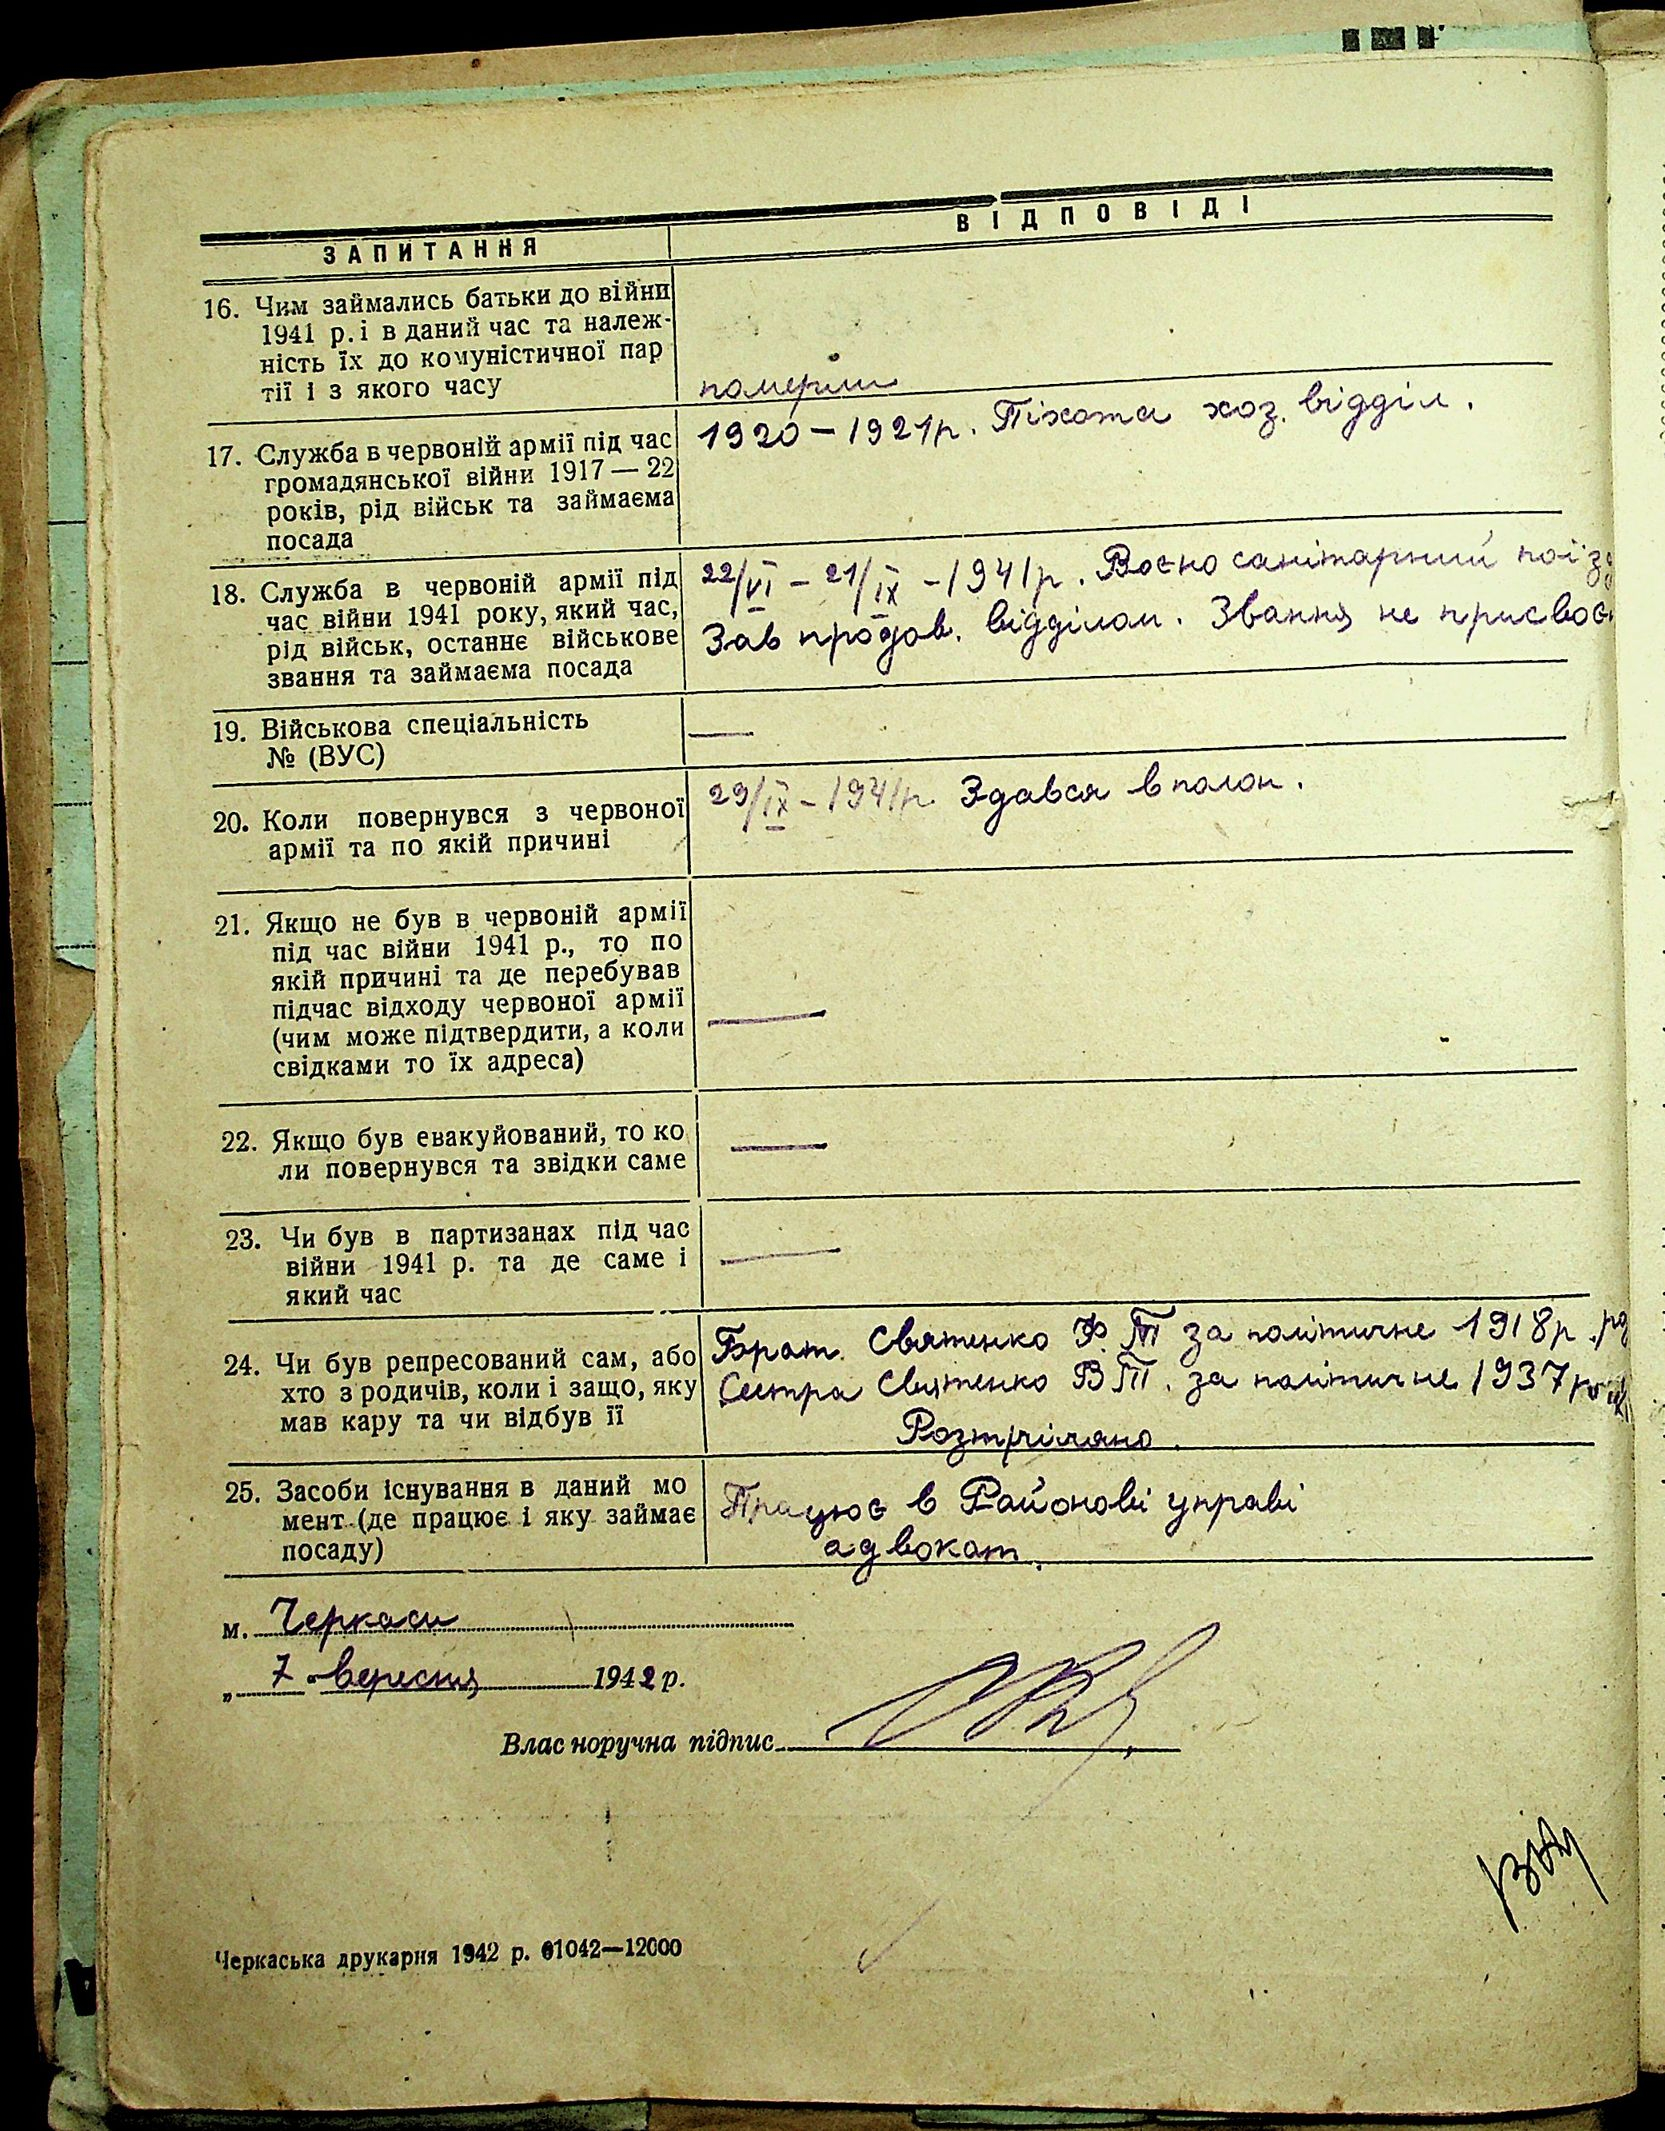 ЗАПИТАННЯ
ВІДПОВІДІ
16. Чим займались батьки до війни
1941 р. і в даний час та належ-
ність їх до комуністичної пар
тії і з якого часу
померли
17. Служба в червоній армії під час
громадянської війни 1917 — 22
років, рід військ та займаєма
посада
1920 – 1921р. Піхота хоз. відділ.
18. Служба в червоній армії під
час війни 1941 року, який час,
рід військ, останнє військове
звання та займаєма посада
22/VI – 21/IX – 1941р. Воєно санітарний поїзд
Зав продов. відділом. Звання не присвоє
19. Військова спеціальність
№ (ВУС)
—
20. Коли повернувся з червоної
армії та по якій причині
29/IX – 1941р. Здався в полон.
21. Якщо не був в червоній армії
під час війни 1941 р., то по
якій причині та де перебував
підчас відходу червоної армії
(чим може підтвердити, а коли
свідками то їх адреса)
—
22. Якщо був евакуйований, то ко
ли повернувся та звідки саме
—
23. Чи був в партизанах під час
війни 1941 р. та де саме і
який час
—
24. Чи був репресований сам, або
хто з родичів, коли і защо, яку
мав кару та чи відбув її
Брат Святенко Ф. Т за політичне 1918р.
Сестра Святенко В Т. за політичне 1937
Розтріляно.
25. Засоби існування в даний мо
мент (де працює і яку займає
посаду)
Працює в Районові управі
адвокат.
м. Черкаси
„ 7 " вересня 1942 р.
Власноручна підпис
Черкаська друкарня 1942 р. 01042—12000